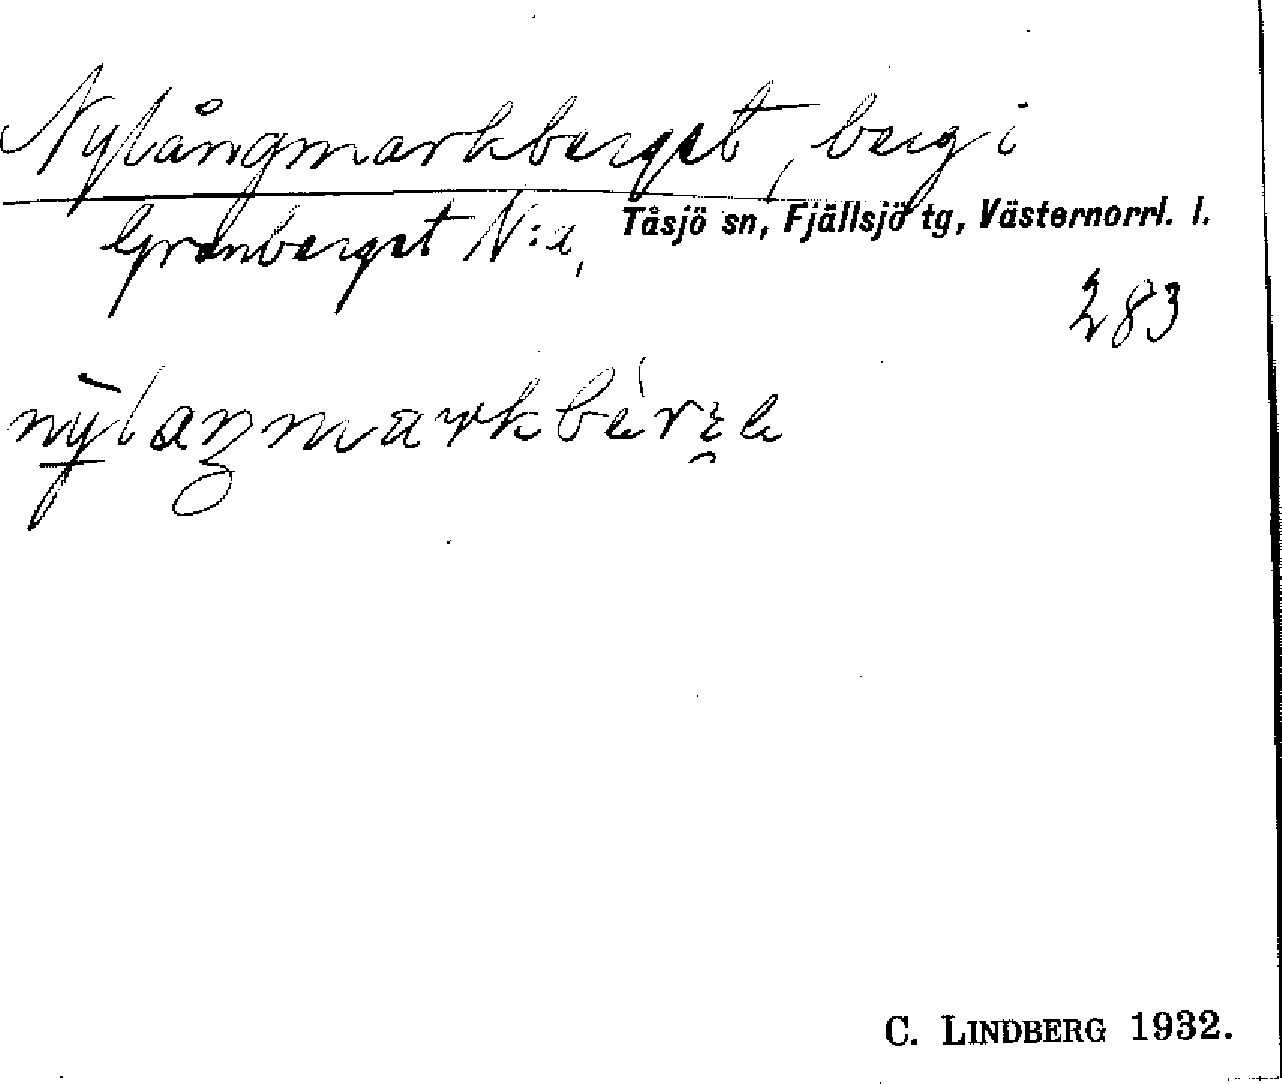 Nylångmarkberget, berg i
Granberget N:a, Tåsjö sn, Fjällsjö tg, Västernorrl. l.
283
C. LINDBERG 1932.